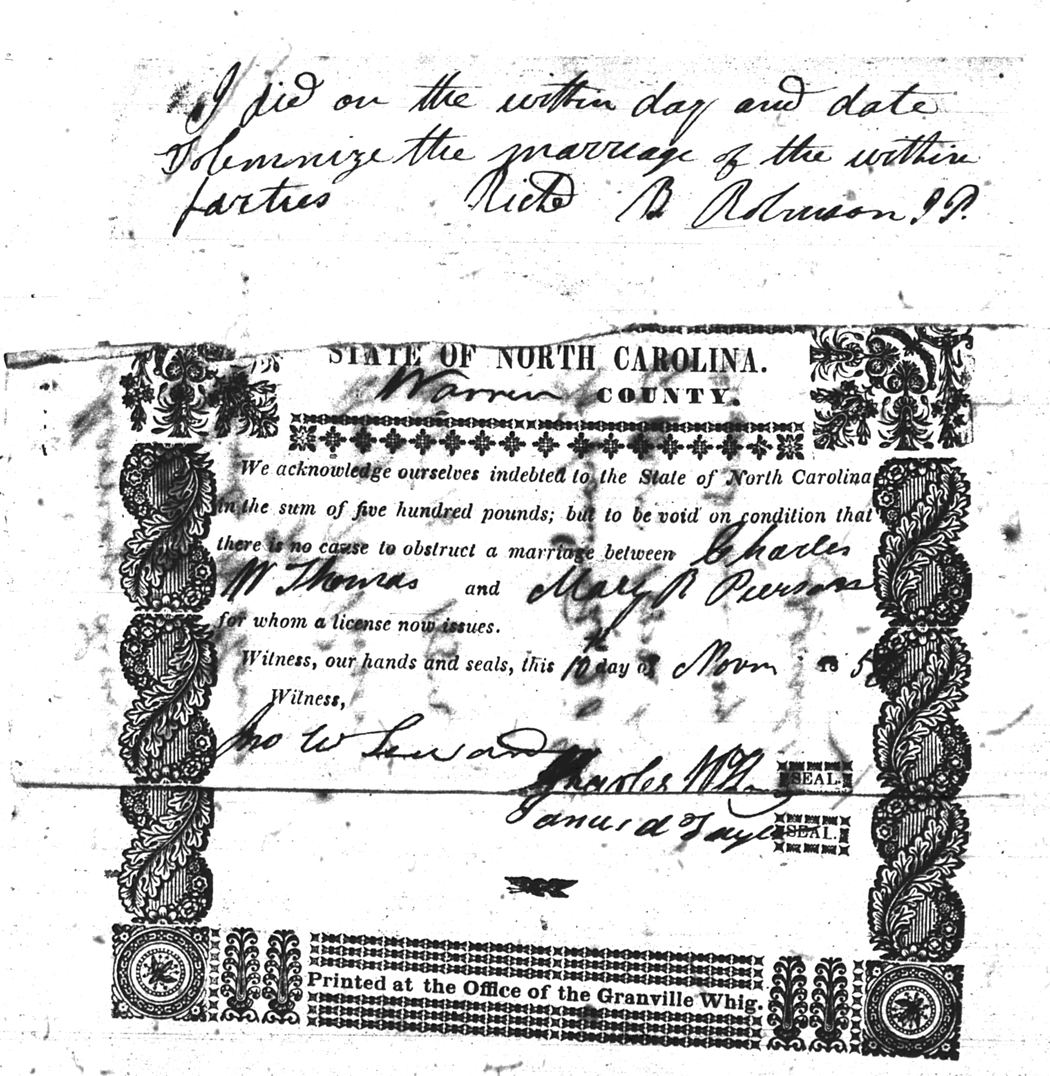 I did on the within day and date
Solemnize the marriage of the within
parties Richd B Robinson J P.
STATE OF NORTH CAROLINA.
Warren COUNTY.
We acknowledge ourselves indebted to the State of North Carolina
in the sum of five hundred pounds; but to be void on condition that
there is no cause to obstruct a marriage between Charles
W Thomas and Mary R Pierson
for whom a license now issues.
Witness, our hands and seals, this 10th day of Novr 185
Witness,
Jno W
Charles W SEAL.
SEAL.
Printed at the Office of the Granville Whig.